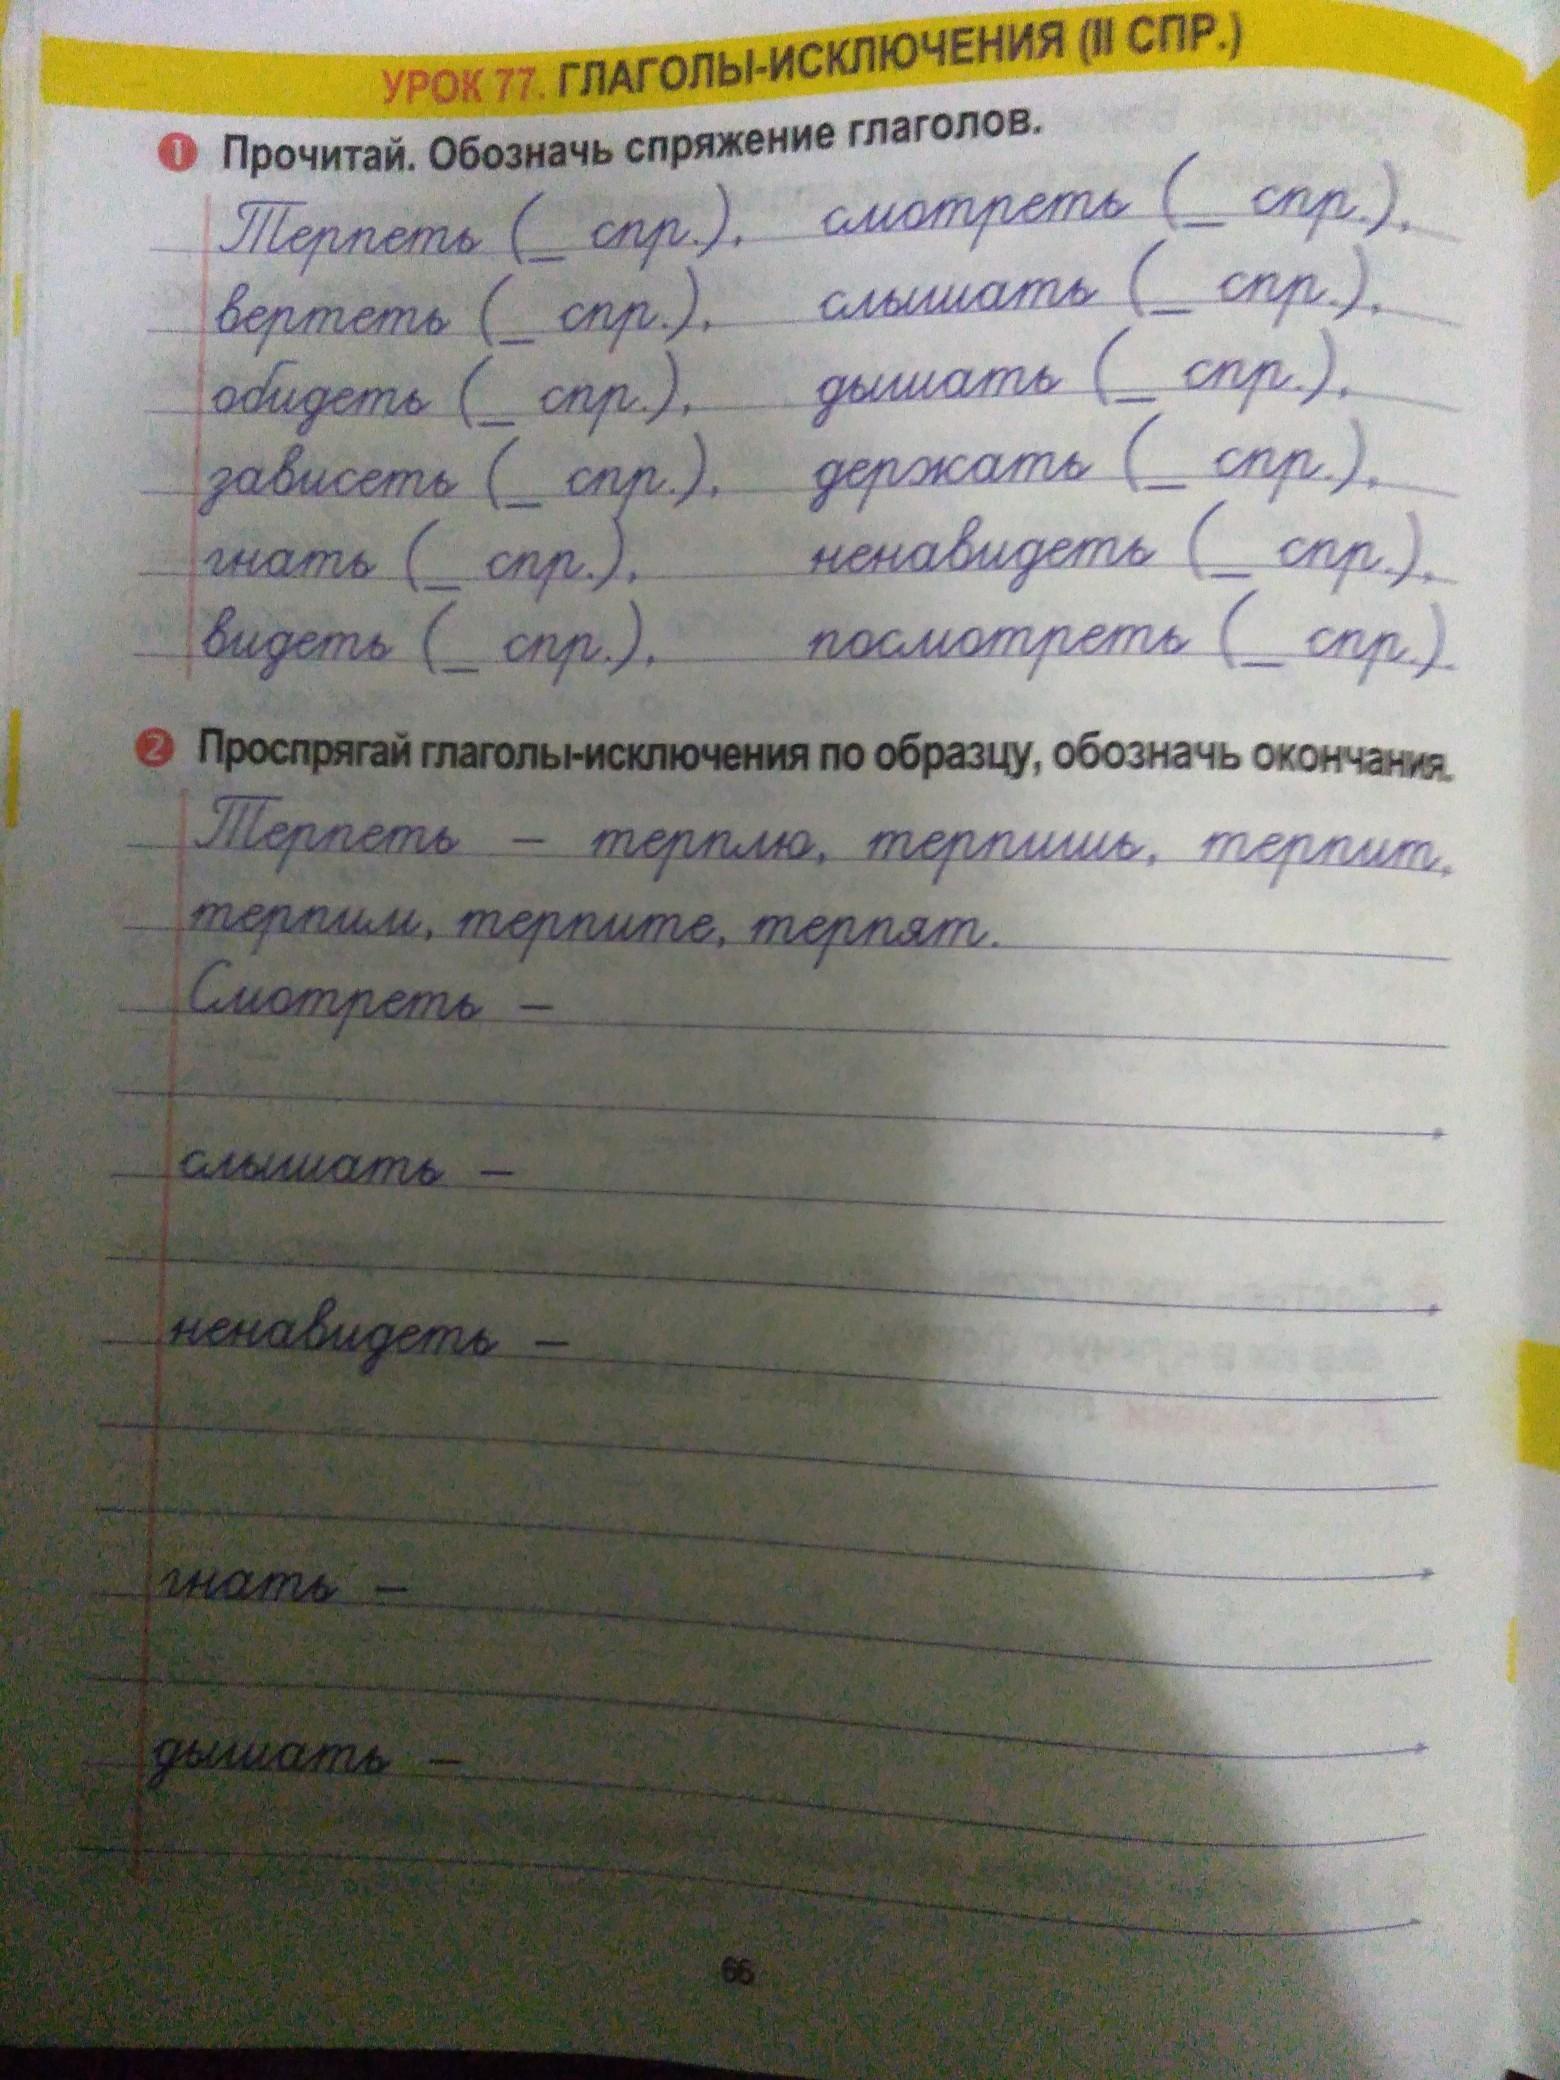 УРОК 77. ГЛАГОЛЫ-ИСКЛЮЧЕНИЯ (II СПР.)
1 Прочитай. Обозначь спряжение глаголов.
Терпеть (_ спр.), смотреть (_ спр.),
вертеть (_ спр.), слышать (_ спр.),
обидеть (_ спр.), дышать (_ спр.),
зависеть (_ спр.), держать (_ спр.),
гнать (_ спр.), ненавидеть (_ спр.),
видеть (_ спр.), посмотреть (_ спр.).
2 Проспрягай глаголы-исключения по образцу, обозначь окончания.
Терпеть – терплю, терпишь, терпит,
терпим, терпите, терпят.
Смотреть –
слышать –
ненавидеть –
гнать –
дышать –
66